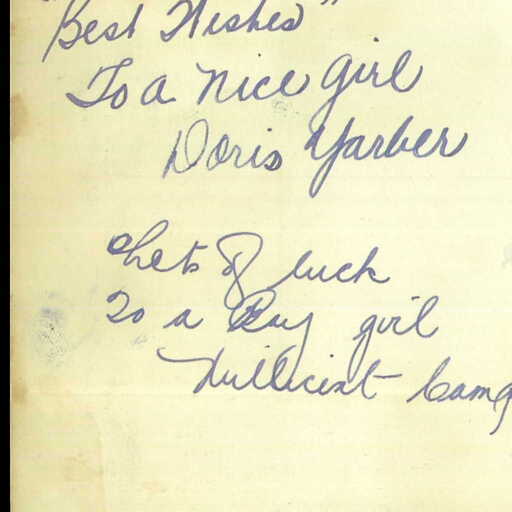 "Best Wishes"
To a nice girl
Doris Yarber
Lets of luck
To a girl
Millicent